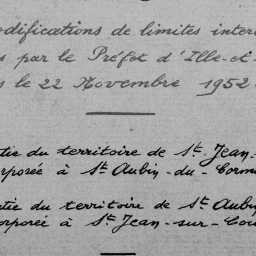 odifications de limites inter
s par le Préfet d'Ille-et-
s le 22 Novembre 1952
tie du territoire de St. Jean-
rporée à St Aubin-du-Corm
tie du territoire de St Aubin
orporée à St Jean-sur-Cou